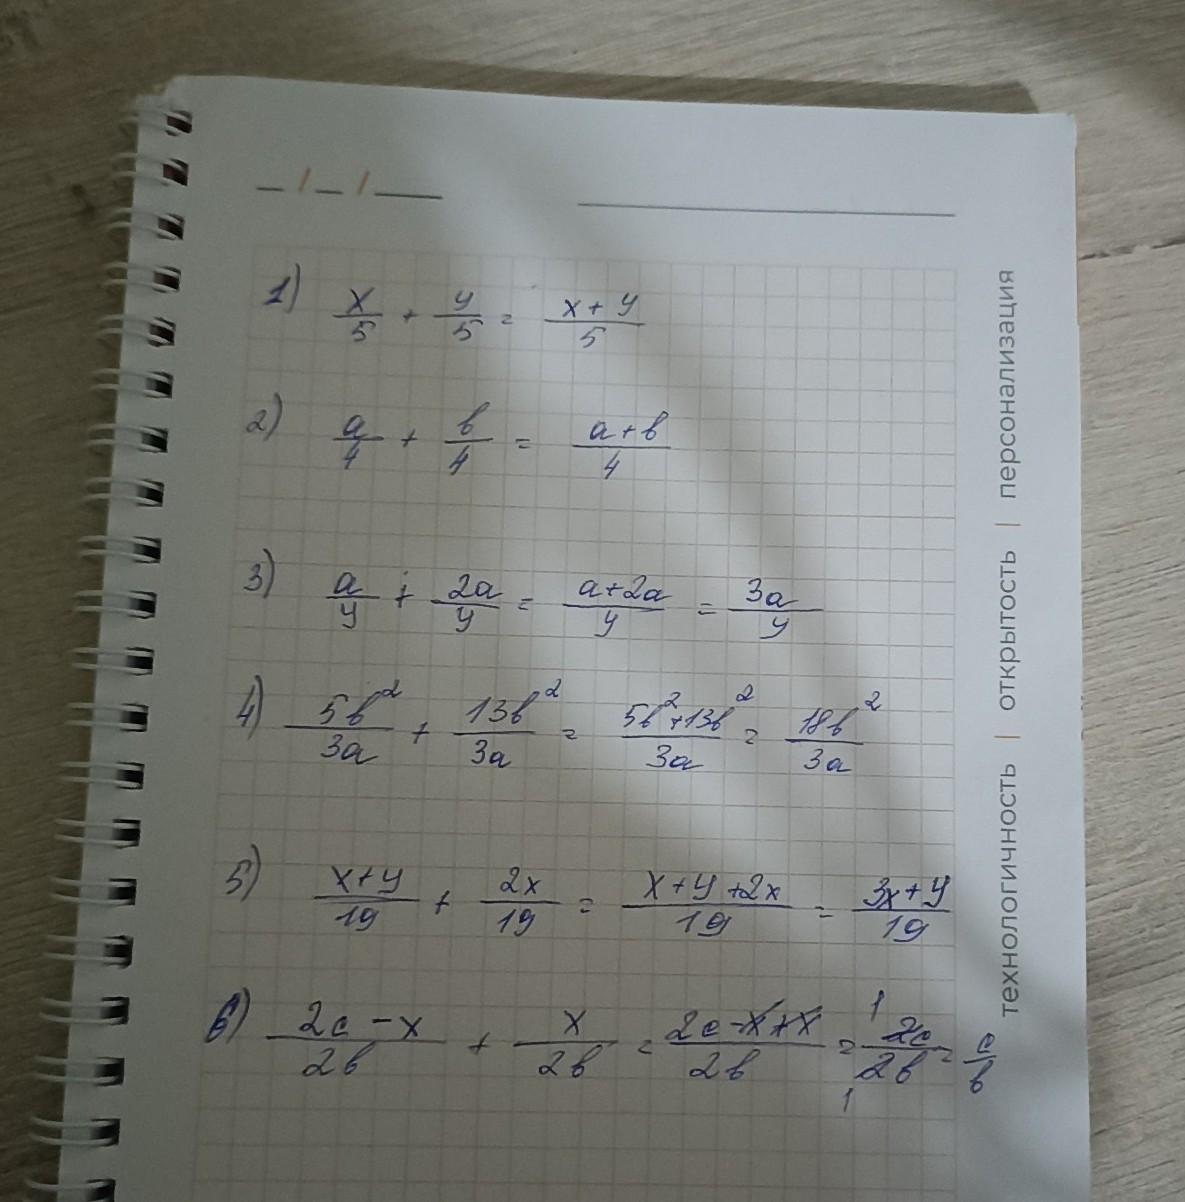 1) x/5 + y/5 = x+y/5
2) a/4 + b/4 = a+b/4
3) a/y + 2a/y = a+2a/y = 3a/y
4) 5b²/3a + 13b²/3a = 5b²+13b²/3a = 18b²/3a
5) x+y/19 + 2x/19 = x+y+2x/19 = 3x+y/19
6) 2c-x/2b + x/2b = 2c-x+x/2b = 1 2c/2b 1 = c/b
технологичность | открытость | персонализация